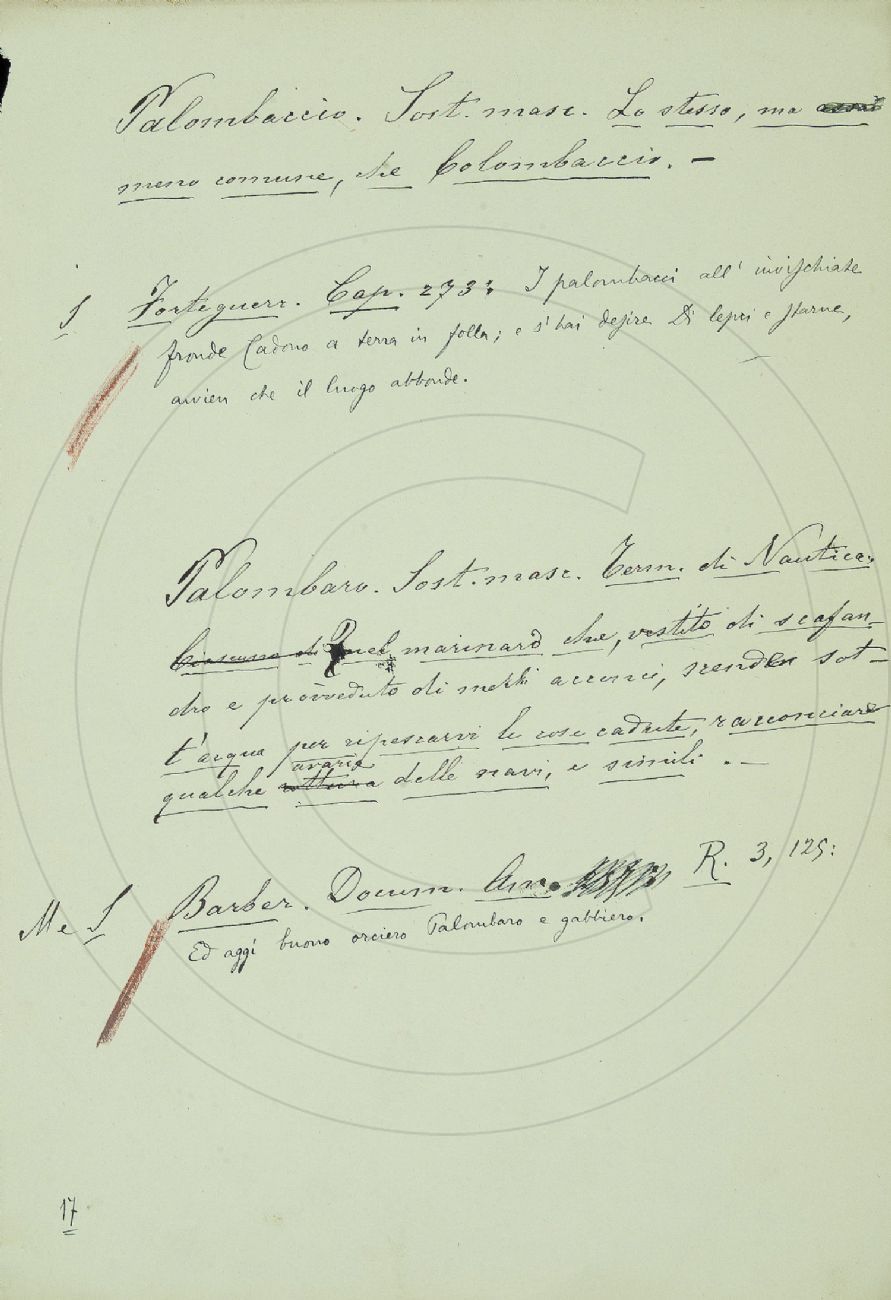 Palombaccio. Sost. masc. Lo stesso, ma
meno comune, che Colombaccio. –
S Forteguerr. Cap. 273: I palombacci all' invischiate
fronde Cadono a terra in folla; e s' hai desire Di lepri e starne,
avvien che il luogo abbonde.
Palombaro. Sost. masc. Term. di Nautica.
Quel marinaro che, vestito di scafan-
dro e provveduto di mezzi acconci, scende sot-
t'acqua per ripescarvi le cose cadute, racconciare
avaria
qualche delle navi, e simili. –
M e S Barber. Docum. Am. R. 3, 125:
Ed aggi buono orciero Palombaro e gabbiero.
17